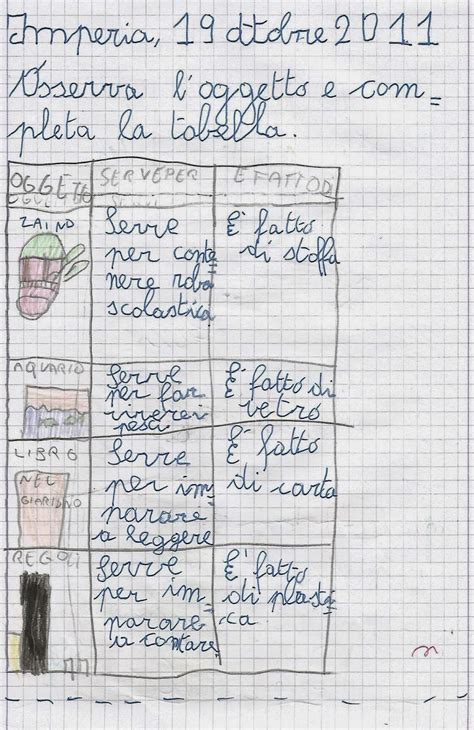 Imperia, 19 ottobre 2011
Osserva l'oggetto e com=
pleta la tabella.
OGGETTO SERVE PER È FATTO DI
ZAINO
Serve
per conte=
nere roba
scolastica
È fatto
di stoffa
AQUARIO
Serve
per far
vivere i
pesci
È fatto di
vetro
LIBRO
NEL
GIARDINO
Serve
per im=
parare
a leggere
È fatto
di carta
REGOLI
Serve
per im=
parare
a contare
È fatto
di plasti=
ca